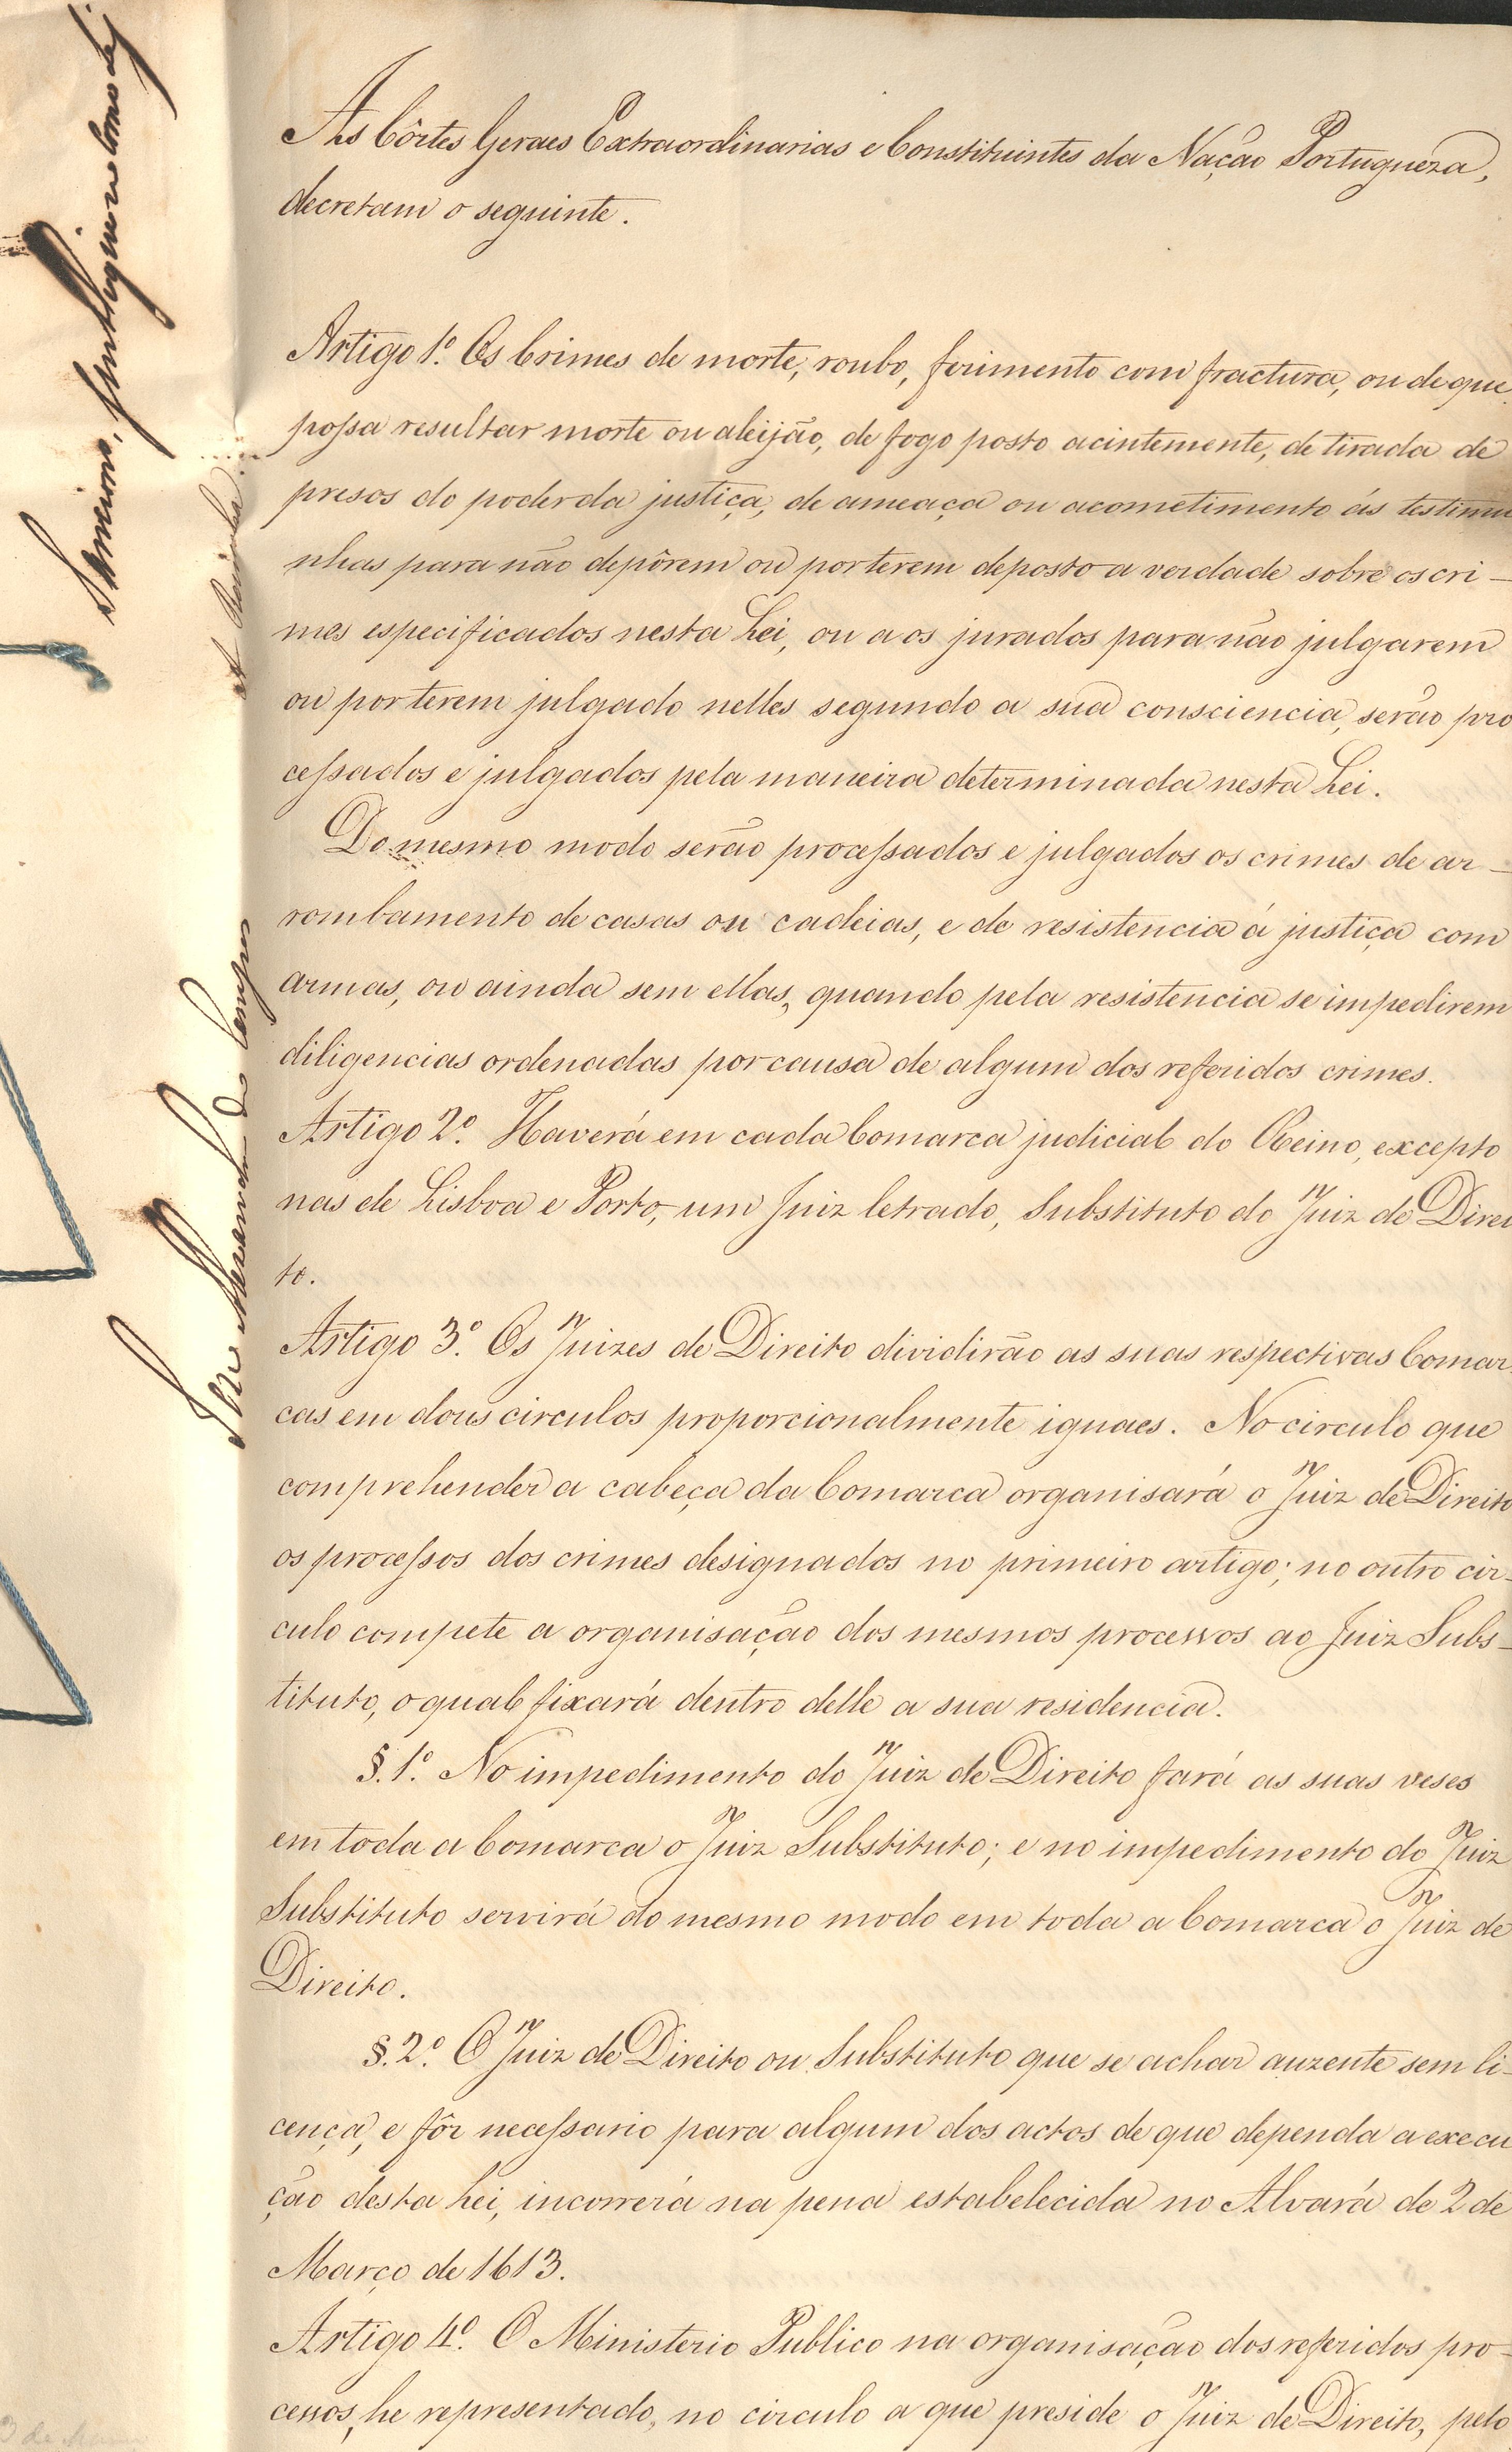 As Côrtes Geraes Extraordinarias e Constituintes da Nação Portugueza,
decretam o seguinte.
Artigo 1.º Os Crimes de morte, roubo, ferimento com fractura, ou de que
possa resultar morte ou aleijão, de fogo posto acintemente, de tirada de
presos do poder da justiça, de ameaça ou acometimento ás testimu
nhas para não depôrem ou por terem deposto a verdade sobre os cri-
mes especificados nesta Lei, ou aos jurados para não julgarem
ou por terem julgado nelles segundo a sua consciencia, serão pro
cessados e julgados pela maneira determinada nesta Lei.
Do mesmo modo serão processados e julgados os crimes de ar-
rombamento de casas ou cadeias, e de resistencia á justiça com
armas, ou ainda sem ellas, quando pela resistencia se impedirem
diligencias ordenadas por causa de algum dos referidos crimes.
Artigo 2.º Haverá em cada Comarca judicial do Reino, excepto
nas de Lisboa e Porto, um Juiz letrado, Substituto do Juiz de Direi
to.
Artigo 3.º Os Juizes de Direito dividirão as suas respectivas Comar
cas em dous circulos proporcionalmente iguaes. No circulo que
comprehender a cabeça da Comarca organisará o Juiz de Direito
os processos dos crimes designados no primeiro artigo; no outro cir-
culo compete a organisação dos mesmos processos ao Juiz Subs-
tituto, o qual fixará dentro delle a sua residencia.
§. 1.º No impedimento do Juiz de Direito fará as suas veses
em toda a Comarca o Juiz Substituto; e no impedimento do Juiz
Substituto servirá do mesmo modo em toda a Comarca o Juiz de
Direito.
§. 2.º O Juiz de Direito ou Substituto que se achar auzente sem li-
cença, e fôr necessario para algum dos actos de que dependa a execu
ção desta Lei, incorrerá na pena estabelecida no Alvará de 2 de
Março de 1613.
Artigo 4.º O Ministerio Publico na organisação dos referidos pro-
cessos, he representado, no circulo a que preside o Juiz de Direito, pelo